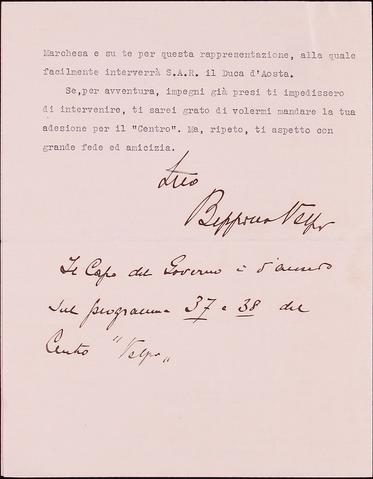 Marchesa e su te per questa rappresentazione, alla quale
facilmente interverrà S.A.R. il Duca d'Aosta.
Se,per avventura, impegni già presi ti impedissero
di intervenire, ti sarei grato di volermi mandare la tua
adesione per il "Centro". Ma, ripeto, ti aspetto con
grande fede ed amicizia.
tuo
Il Capo del Governo è d'accordo
sul programma 37 e 38 del
Centro